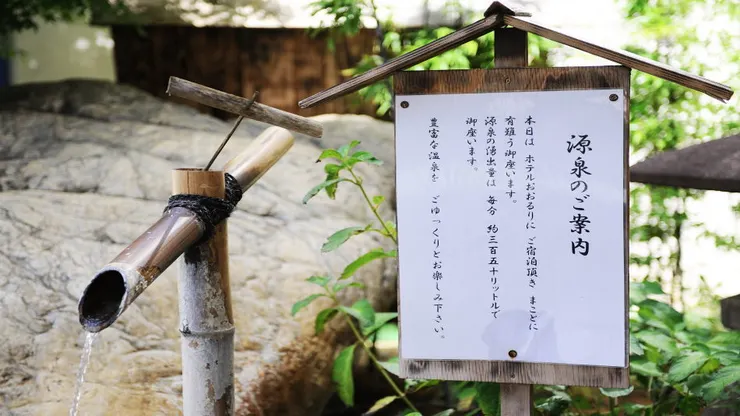 源泉のご案内
本日は ホテルおおるりに ご宿泊頂き まことに
有難う御座います。
源泉の湧出量は 毎分 約三百五十リットルで
御座います。
豊富な温泉を ごゆっくりとお楽しみ下さい。